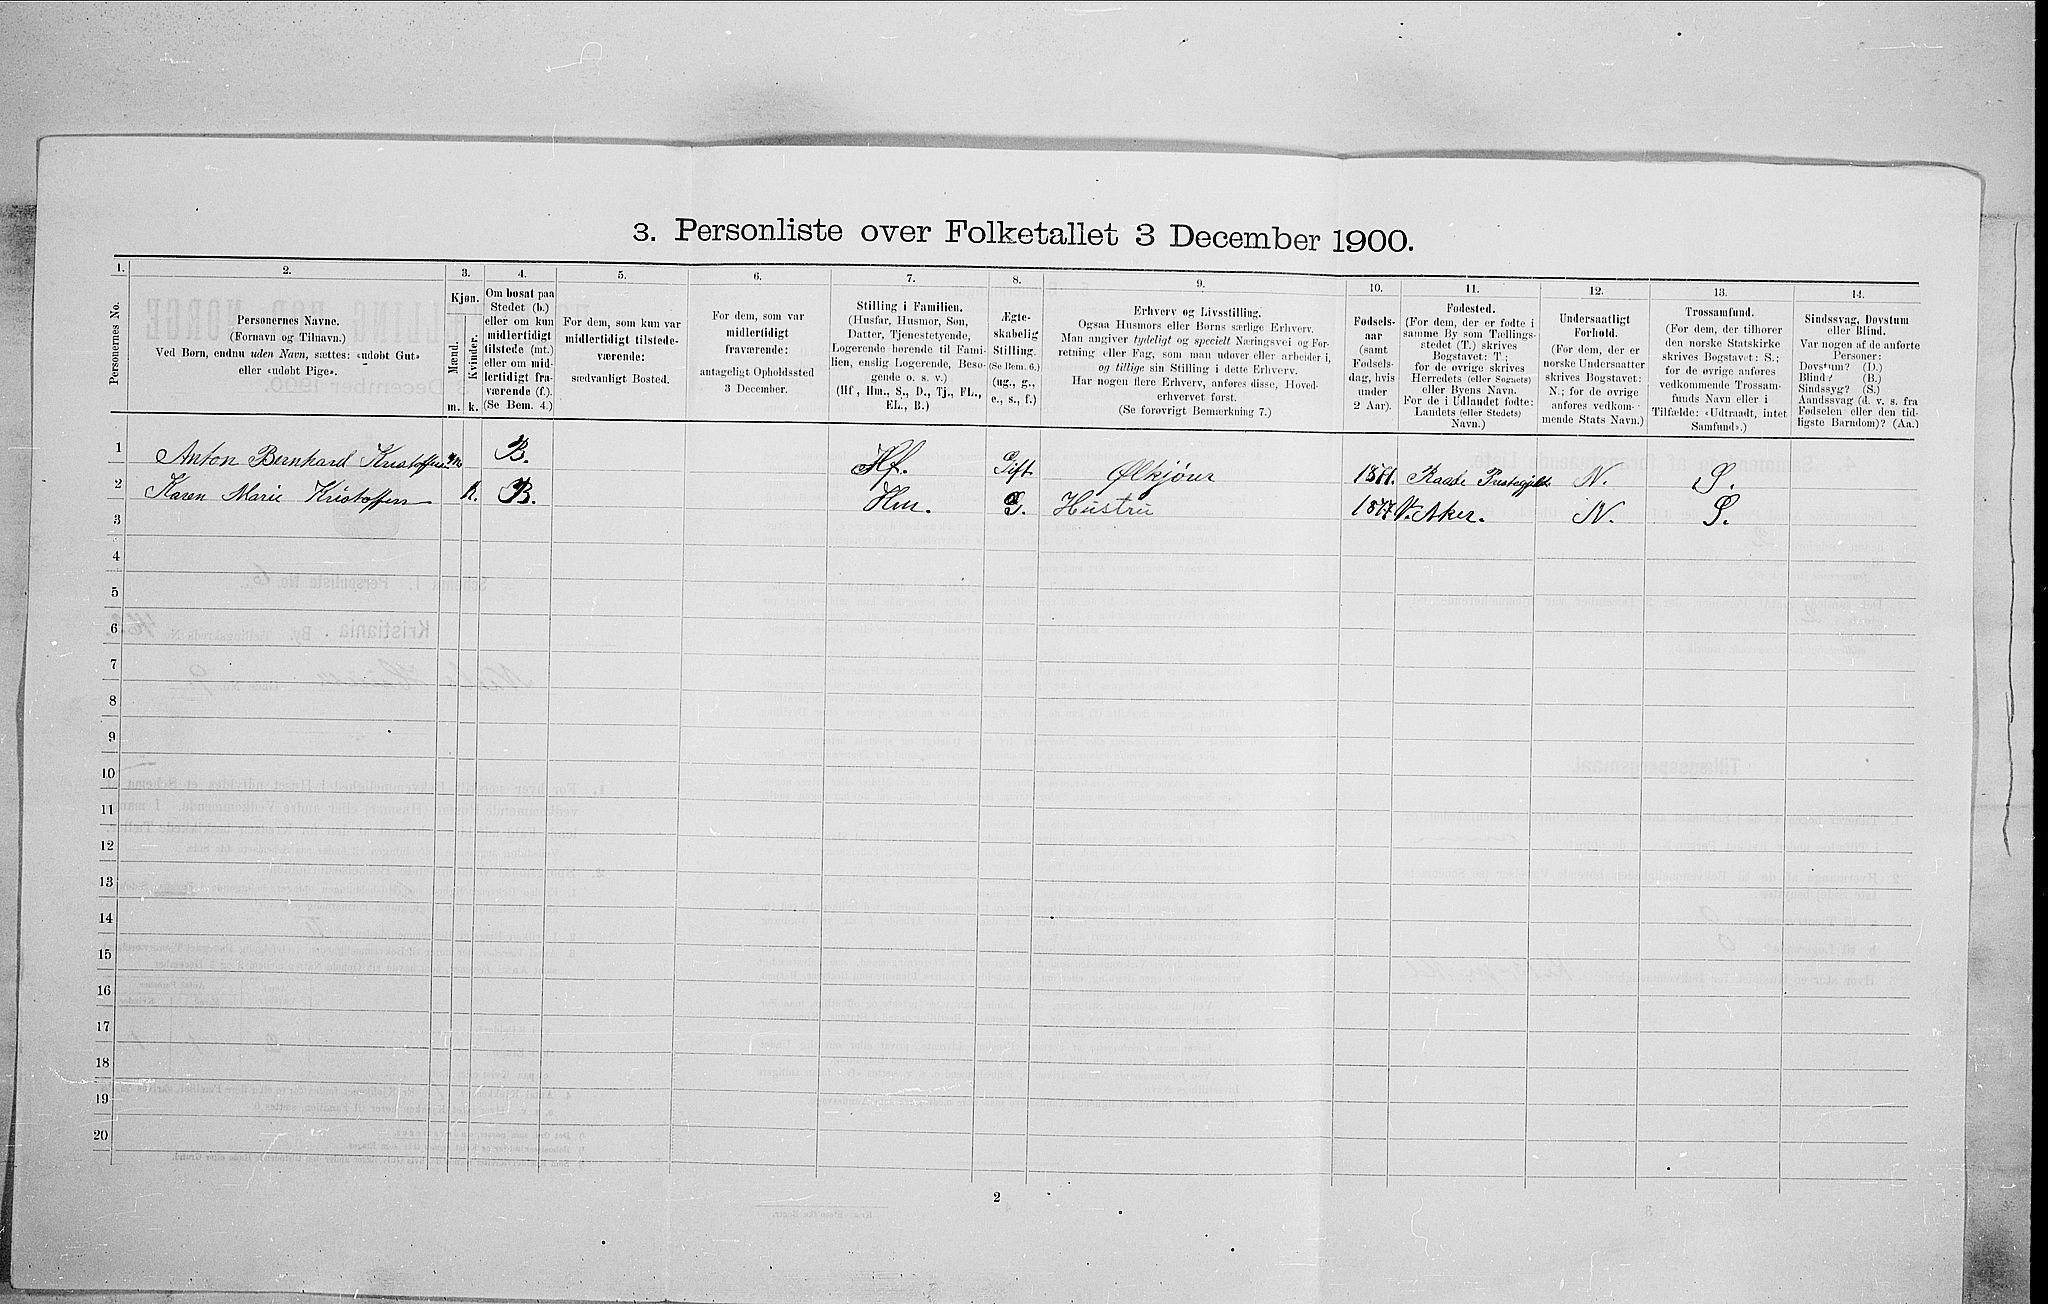 3. Personliste over Folketallet 3 December 1900.
1. 2. 3. 4. 5. 6. 7. 8. 9. 10. 11. 12. 13. 14.
Personernes No.
Personernes Navne.
(Fornavn og Tilnavn.)
Ved Børn, endnu uden Navn, sættes: «udøbt Gut»
eller «udøbt Pige».
Kjøn.
Mænd.
Kvinder.
m. k.
Om bosat paa
Stedet (b.)
eller om kun
midlertidigt
tilstede (mt.)
eller om mid-
lertidigt fra-
værende (f.).
(Se Bem. 4.)
For dem, som kun var
midlertidigt tilstede-
værende:
sædvanligt Bosted.
For dem, som var
midlertidigt
fraværende:
antageligt Opholdssted
3 December.
Stilling i Familien.
(Husfar, Husmor, Søn,
Datter, Tjenestetyende,
Logerende hørende til Fami-
lien, enslig Logerende, Besø-
gende o. s. v.)
(Hf., Hm., S., D., Tj., FL.,
EL., B.)
Ægte-
skabelig
Stilling.
(Se Bem. 6.)
(ug., g.,
e., s., f.)
Erhverv og Livsstilling.
Ogsaa Husmors eller Børns særlige Erhverv.
Man angiver tydeligt og specielt Næringsvei og For-
retning eller Fag, som man udøver eller arbeider i,
og tillige sin Stilling i dette Erhverv.
Har nogen flere Erhverv, anføres disse, Hoved-
erhvervet først.
(Se forøvrigt Bemærkning 7.)
Fødsels-
aar
(samt
Fødsels-
dag, hvis
under
2 Aar).
Fødested.
(For dem, der er fødte i
samme By som Tællings-
stedet (T.) skrives
Bogstavet: T;
for de øvrige skrives
Herredets (eller Sognets)
eller Byens Navn.
For de i Udlandet fødte:
Landets (eller Stedets)
Navn.)
Undersaatligt
Forhold.
(For dem, der er
norske Undersaatter
skrives Bogstavet:
N.; for de øvrige
anføres vedkom-
mende Stats Navn.)
Trossamfund.
(For dem, der tilhører
den norske Statskirke
skrives Bogstavet: S.;
for de øvrige anføres
vedkommende Trossam-
funds Navn eller i
Tilfælde: «Udtraadt, intet
Samfund».)
Sindssvag, Døvstum
eller Blind.
Var nogen af de anførte
Personer:
Døvstum? (D.)
Blind? (B.)
Sindssyg? (S.)
Aandssvag (d. v. s. fra
Fødselen eller den tid-
ligste Barndom)? (Aa.)
1 Anton Bernhard m. B. Hf. Gift Ølkjører Raade N. S.
2 Karen Marie Kristoffersen k. B. Hm. G. Hustru V. Aker. N. S.
3
4
5
6
7
8
9
10
11
12
13
14
15
16
17
18
19
20
2